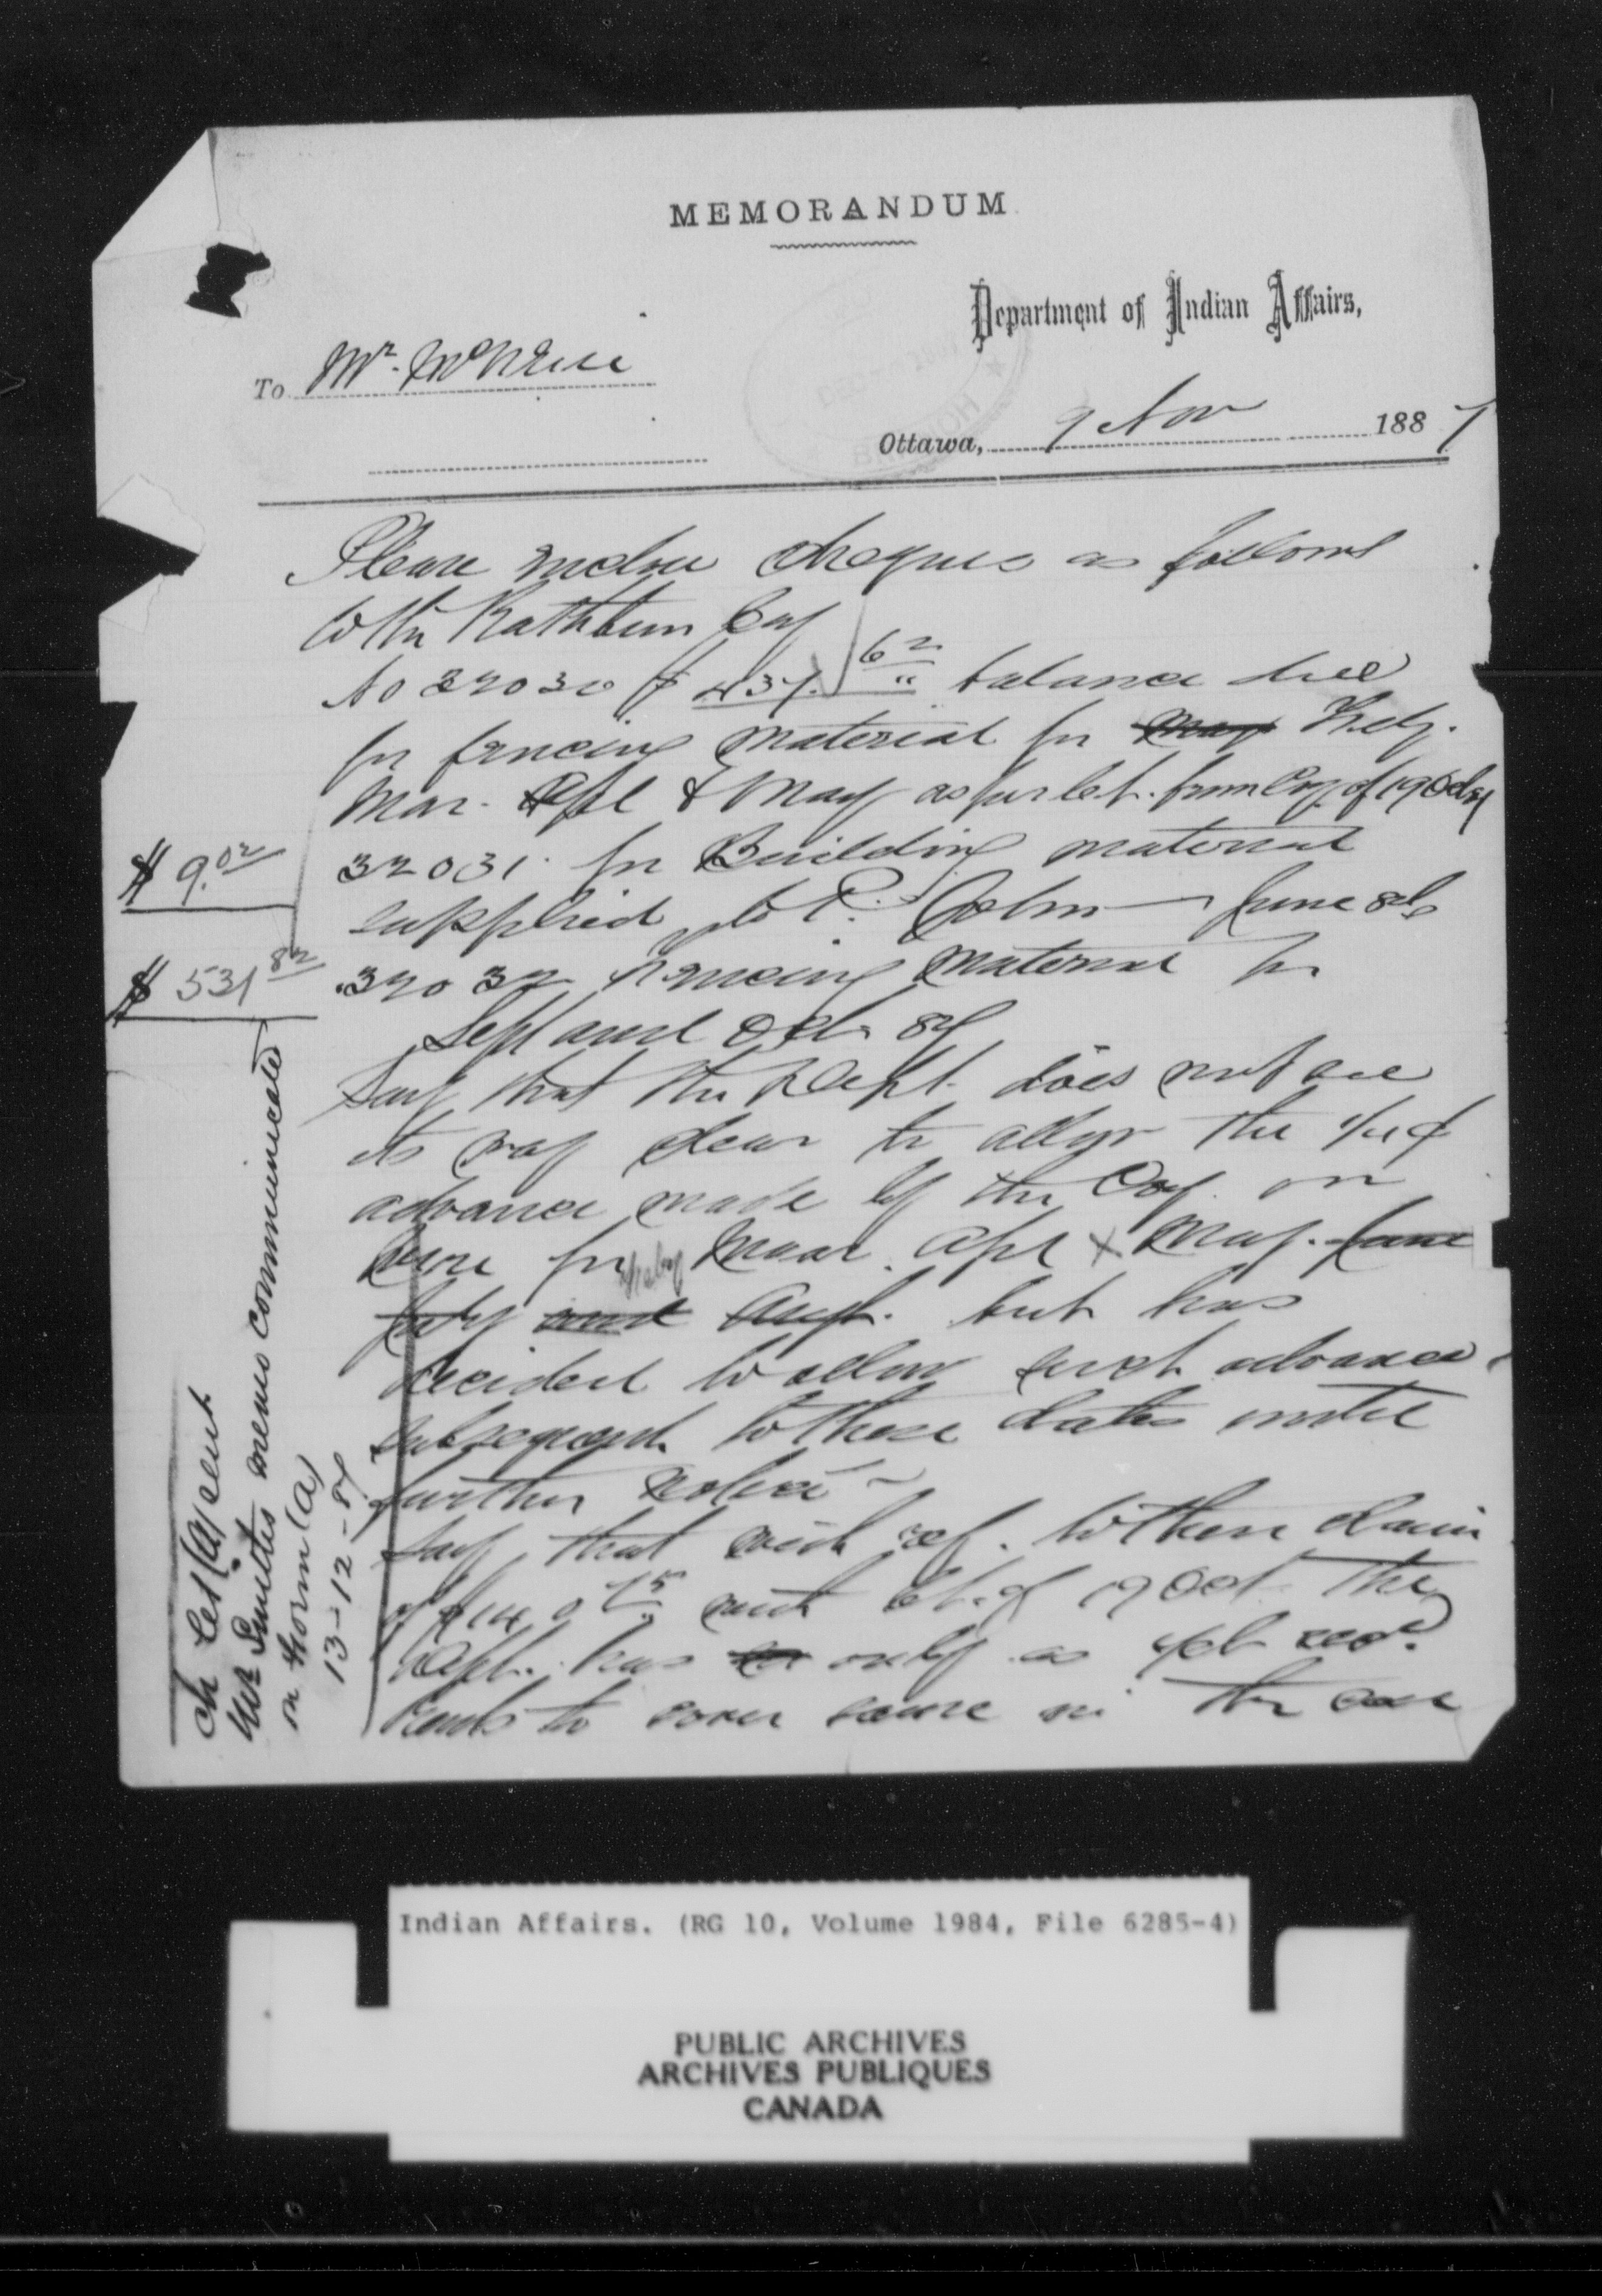 MEMORANDUM
Department of Indian Affairs,
To Mr. McNeill
Ottawa, 9 Nov 1887
Please enclose cheques as follows
to the Rathbun Coy
No 32030 $ 437.62 balance due
for fencing material for May Feby.
Mar. Apl & May as per let. from Coy of 19 Oct 87
$ 9.02
32031 for Building material
supplied to P. John June 86
$ 531.82
32032 Fencing material for
Sept and Oct 87
Say that the Dept. does not see
its way clear to allow the
advance made by the Coy. on
for Feby Mar. Apl & May. June
July and Aug. but has
decided to allow such advance
subsequent to these dates until
further notice
Say that with ref. to their claim
of 75 with let. of 19 Oct. the
Dept. has only as yet recd.
to cover same in the case
ch Let (a) sent
Mr Smiths memo communicated
on Form (a)
13-12-87
Indian Affairs. (RG 10, Volume 1984, File 6285-4)
PUBLIC ARCHIVES
ARCHIVES PUBLIQUES
CANADA